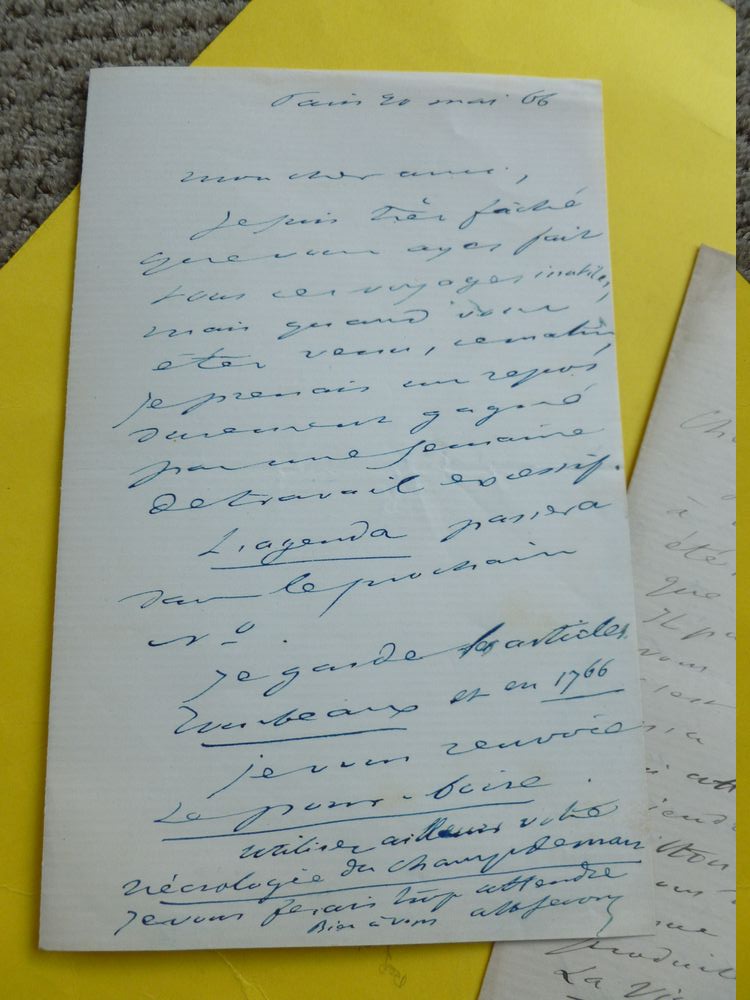 Paris 20 mai 66
mon cher ami,
Je suis très fâché
que vous ayez fait
tous ces voyages inutiles,
mais quand vous
êtes venu, ce matin,
je prenais un repos
durement gagné
par une semaine
de travail excessif.
L'agenda passera
dans le prochain
No.
Je garde les articles
Tombeaux et en 1766
je vous renvoie
Le pour-boire.
utilisez ailleurs votre
nécrologie du champ de mars
je vous ferais trop attendre
Bien à vous
Ch
à
été
que
Il pa
vous
La Vi